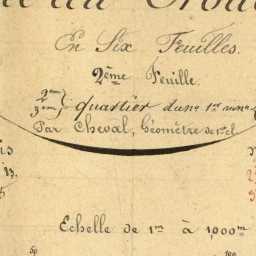 En Six Feuilles.
2ème Feuille.
2me
3me } quartier du no 1er au no
Par Cheval, Géomètre de 1re cl
is
13.
5
Echelle de 1m à 1,000m
50
100